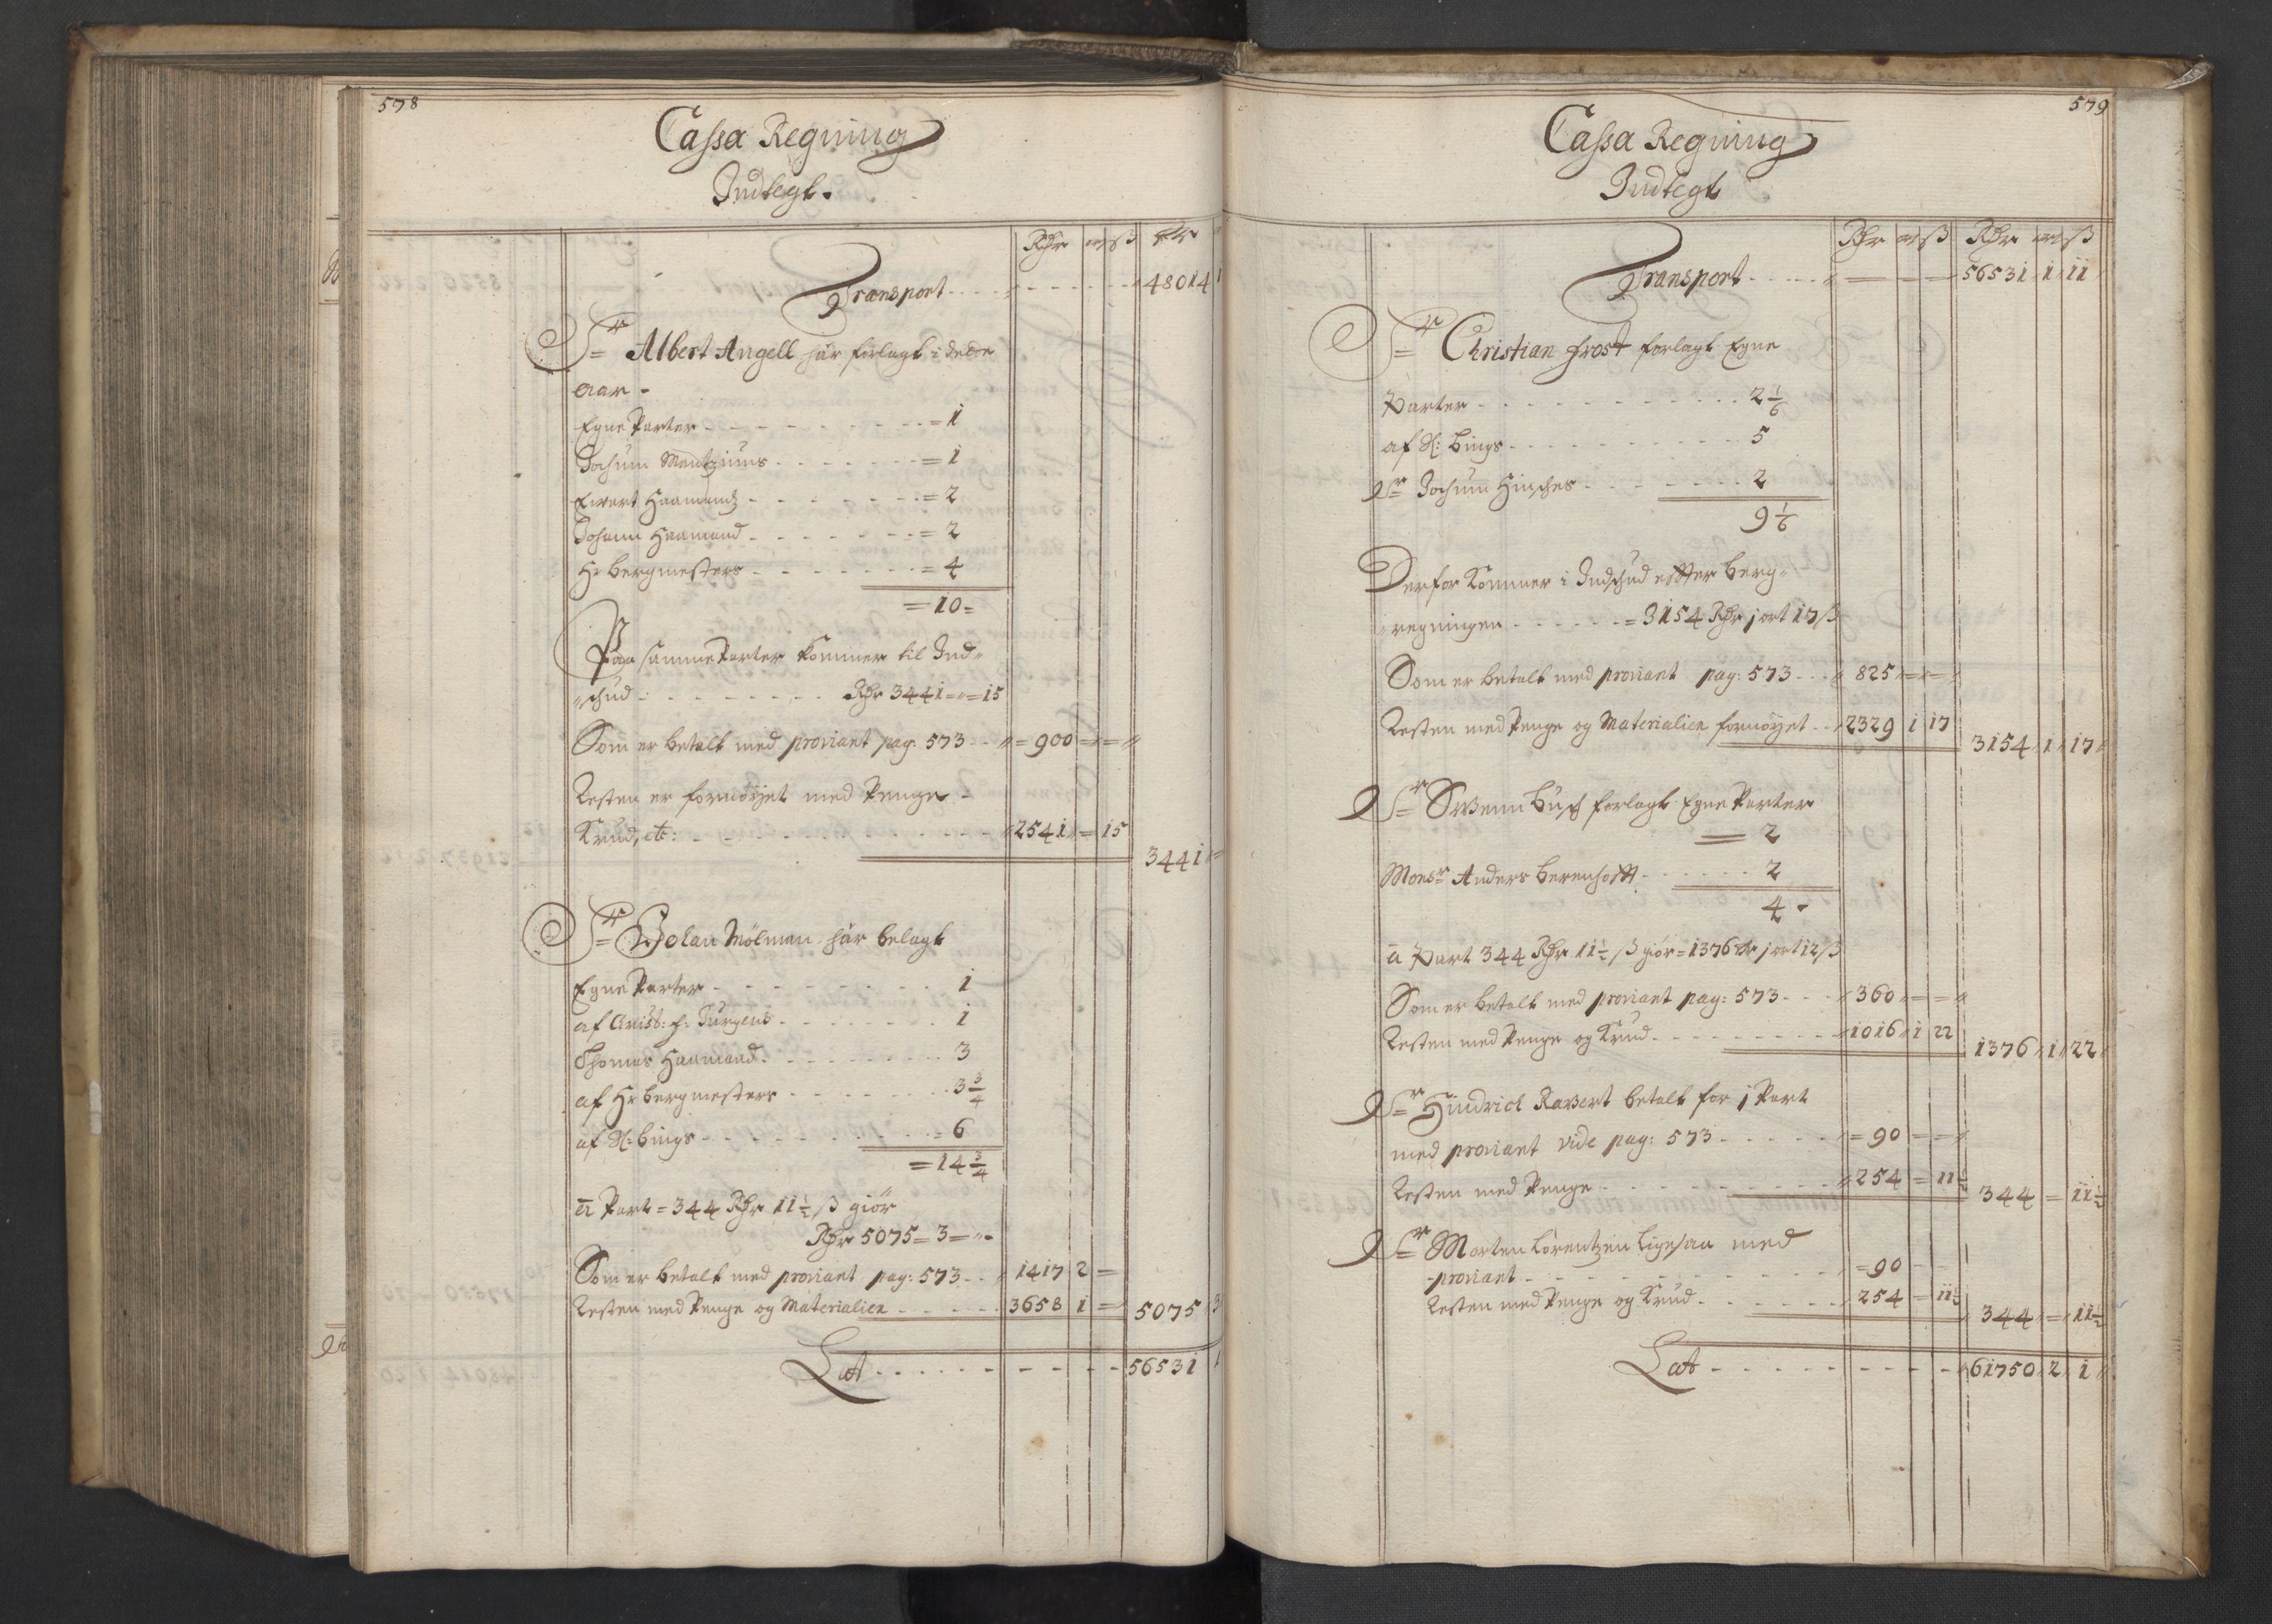 578
Cassa Regning
Indtegt.
Rdr ort ß Rdr
Transport - - - - 48014 1
Sr Albert Angell har forlagt i dette
Aar -
Egne Parter - - - - = 1
Jochum Mentziuns - - - - = 1
Ewert Haamand - - - - = 2
Johann Haamand - - - - = 2
Hr Bergmesters - - - - = 4
= 10 =
Paa samme Parter kommer til Ind=
=schud - - - - Rdr 3441 = = 15
Som er betalt med proviant pag: 573 - - = 900 = =
Resten er fornøyet med Penge -
Krud, etc: - - - - 2541 = 15
3441 =
Sr Johan Mølman har belagt
Egne Parter - - - - 1
af Christ: f: Jurgens - - - - 1
Thomas Haamand - - - - 3
af Hr Bergmesters - - - - 3 3/4
af Sl: Bings - - - - = 6
= 14 3/4
a Part = 344 Rdr 11 1/2 ß giör
Rdr 5075 = 3 = "
Som er betalt med proviant pag: 573 - - 1417 2 =
Resten med Penge og Materialien - - - - 3658 1 = 5075 3
Lat - - - - 56531 1
579
Cassa Regning
Indtegt
Rdr ort ß Rdr ort ß
Transport - - - - 56531 1 11
Sr Christian Frost forlagt Egne
Parter - - - - 2 1/6
af Sl: Bings - - - - 5
Sr Jochum Hinsches - - - - 2
9 1/6
Derfor kommer i Indschud effter Berg=
regningen - - - - = 3154 Rdr j ort 17 ß
Som er betalt med proviant pag: 573 - - 825 = =
Resten med Penge og Materialien fornøyet - - 2329 1 17
3154 1 17
Sr Swenn Busch forlagt Egne Parter
= 2
Monsr Anders Berenhofft - - - - 2
4 -
a Part 344 Rdr 11 1/2 ß giör = 1376 dr j ort 12 ß
Som er betalt med proviant pag: 573 - - - 360 = =
Resten med Penge og Krud - - - - 1016 1 22
1376 1 22
Sr Hindrich Ravert betalt for j Part
med proviant vide pag: 573 - - - - = 90 = =
Resten med Penge - - - - 254 = 11 1/2
344 = 11 1/2
Sr Morten Lorentzen ligesaa med
-proviant - - - - = 90
Resten med Penge og Krud - - - - 254 = 11 1/2
344 = 11 1/2
Lat - - - - 61750 2 1